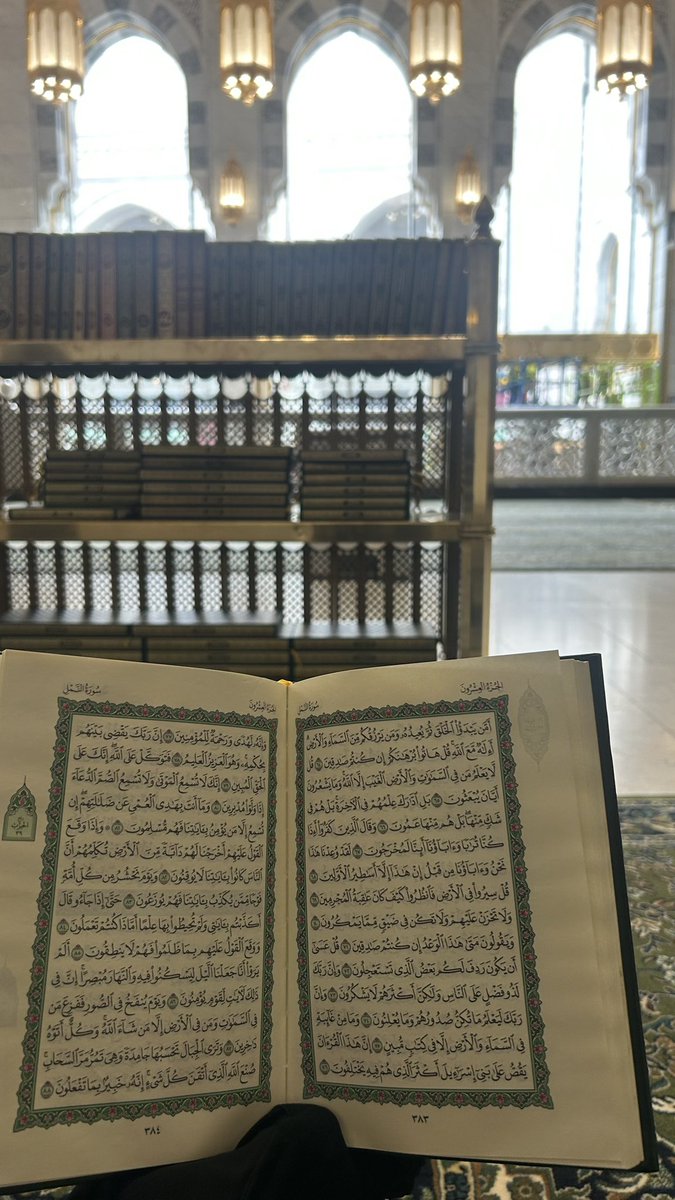 الجُزْءُ العِشْرُونَ
سُورَةُ النَّمْلِ
أَمَّن يَبْدَؤُاْ ٱلْخَلْقَ ثُمَّ يُعِيدُهُۥ وَمَن يَرْزُقُكُم مِّنَ ٱلسَّمَآءِ وَٱلْأَرْضِ
أَءِلَٰهٌ مَّعَ ٱللَّهِ قُلْ هَاتُواْ بُرْهَٰنَكُمْ إِن كُنتُمْ صَٰدِقِينَ ٦٤ قُل
لَّا يَعْلَمُ مَن فِى ٱلسَّمَٰوَٰتِ وَٱلْأَرْضِ ٱلْغَيْبَ إِلَّا ٱللَّهُ وَمَا يَشْعُرُونَ
أَيَّانَ يُبْعَثُونَ ٦٥ بَلِ ٱدَّٰرَكَ عِلْمُهُمْ فِى ٱلْأٓخِرَةِ بَلْ هُمْ فِى
شَكٍّ مِّنْهَا بَلْ هُم مِّنْهَا عَمُونَ ٦٦ وَقَالَ ٱلَّذِينَ كَفَرُوٓاْ أَءِذَا
كُنَّا تُرَٰبًا وَءَابَآؤُنَآ أَئِنَّا لَمُخْرَجُونَ ٦٧ لَقَدْ وُعِدْنَا هَٰذَا
نَحْنُ وَءَابَآؤُنَا مِن قَبْلُ إِنْ هَٰذَآ إِلَّآ أَسَٰطِيرُ ٱلْأَوَّلِينَ ٦٨
قُلْ سِيرُواْ فِى ٱلْأَرْضِ فَٱنظُرُواْ كَيْفَ كَانَ عَٰقِبَةُ ٱلْمُجْرِمِينَ ٦٩
وَلَا تَحْزَنْ عَلَيْهِمْ وَلَا تَكُن فِى ضَيْقٍ مِّمَّا يَمْكُرُونَ ٧٠
وَيَقُولُونَ مَتَىٰ هَٰذَا ٱلْوَعْدُ إِن كُنتُمْ صَٰدِقِينَ ٧١ قُلْ عَسَىٰٓ
أَن يَكُونَ رَدِفَ لَكُم بَعْضُ ٱلَّذِى تَسْتَعْجِلُونَ ٧٢ وَإِنَّ رَبَّكَ
لَذُو فَضْلٍ عَلَى ٱلنَّاسِ وَلَٰكِنَّ أَكْثَرَهُمْ لَا يَشْكُرُونَ ٧٣ وَإِنَّ
رَبَّكَ لَيَعْلَمُ مَا تُكِنُّ صُدُورُهُمْ وَمَا يُعْلِنُونَ ٧٤ وَمَا مِنْ غَآئِبَةٍ
فِى ٱلسَّمَآءِ وَٱلْأَرْضِ إِلَّا فِى كِتَٰبٍ مُّبِينٍ ٧٥ إِنَّ هَٰذَا ٱلْقُرْءَانَ
يَقُصُّ عَلَىٰ بَنِىٓ إِسْرَٰٓءِيلَ أَكْثَرَ ٱلَّذِى هُمْ فِيهِ يَخْتَلِفُونَ ٧٦
٣٨٣
الجُزْءُ العِشْرُونَ
سُورَةُ النَّمْلِ
وَإِنَّهُۥ لَهُدًى وَرَحْمَةٌ لِّلْمُؤْمِنِينَ ٧٧ إِنَّ رَبَّكَ يَقْضِى بَيْنَهُم
بِحُكْمِهِۦ وَهُوَ ٱلْعَزِيزُ ٱلْعَلِيمُ ٧٨ فَتَوَكَّلْ عَلَى ٱللَّهِ إِنَّكَ عَلَى
ٱلْحَقِّ ٱلْمُبِينِ ٧٩ إِنَّكَ لَا تُسْمِعُ ٱلْمَوْتَىٰ وَلَا تُسْمِعُ ٱلصُّمَّ ٱلدُّعَآءَ
إِذَا وَلَّوْاْ مُدْبِرِينَ ٨٠ وَمَآ أَنتَ بِهَٰدِى ٱلْعُمْىِ عَن ضَلَٰلَتِهِمْ إِن
تُسْمِعُ إِلَّا مَن يُؤْمِنُ بِـَٔايَٰتِنَا فَهُم مُّسْلِمُونَ ٨١ ۞ وَإِذَا وَقَعَ
ٱلْقَوْلُ عَلَيْهِمْ أَخْرَجْنَا لَهُمْ دَآبَّةً مِّنَ ٱلْأَرْضِ تُكَلِّمُهُمْ أَنَّ
ٱلنَّاسَ كَانُواْ بِـَٔايَٰتِنَا لَا يُوقِنُونَ ٨٢ وَيَوْمَ نَحْشُرُ مِن كُلِّ أُمَّةٍ
فَوْجًا مِّمَّن يُكَذِّبُ بِـَٔايَٰتِنَا فَهُمْ يُوزَعُونَ ٨٣ حَتَّىٰٓ إِذَا جَآءُو قَالَ
أَكَذَّبْتُم بِـَٔايَٰتِى وَلَمْ تُحِيطُواْ بِهَا عِلْمًا أَمَّاذَا كُنتُمْ تَعْمَلُونَ ٨٤
وَوَقَعَ ٱلْقَوْلُ عَلَيْهِم بِمَا ظَلَمُواْ فَهُمْ لَا يَنطِقُونَ ٨٥ أَلَمْ
يَرَوْاْ أَنَّا جَعَلْنَا ٱلَّيْلَ لِيَسْكُنُواْ فِيهِ وَٱلنَّهَارَ مُبْصِرًا إِنَّ فِى
ذَٰلِكَ لَأٓيَٰتٍ لِّقَوْمٍ يُؤْمِنُونَ ٨٦ وَيَوْمَ يُنفَخُ فِى ٱلصُّورِ فَفَزِعَ مَن
فِى ٱلسَّمَٰوَٰتِ وَمَن فِى ٱلْأَرْضِ إِلَّا مَن شَآءَ ٱللَّهُ وَكُلٌّ أَتَوْهُ
دَٰخِرِينَ ٨٧ وَتَرَى ٱلْجِبَالَ تَحْسَبُهَا جَامِدَةً وَهِىَ تَمُرُّ مَرَّ ٱلسَّحَابِ
صُنْعَ ٱللَّهِ ٱلَّذِىٓ أَتْقَنَ كُلَّ شَىْءٍ إِنَّهُۥ خَبِيرٌۢ بِمَا تَفْعَلُونَ ٨٨
٣٨٤